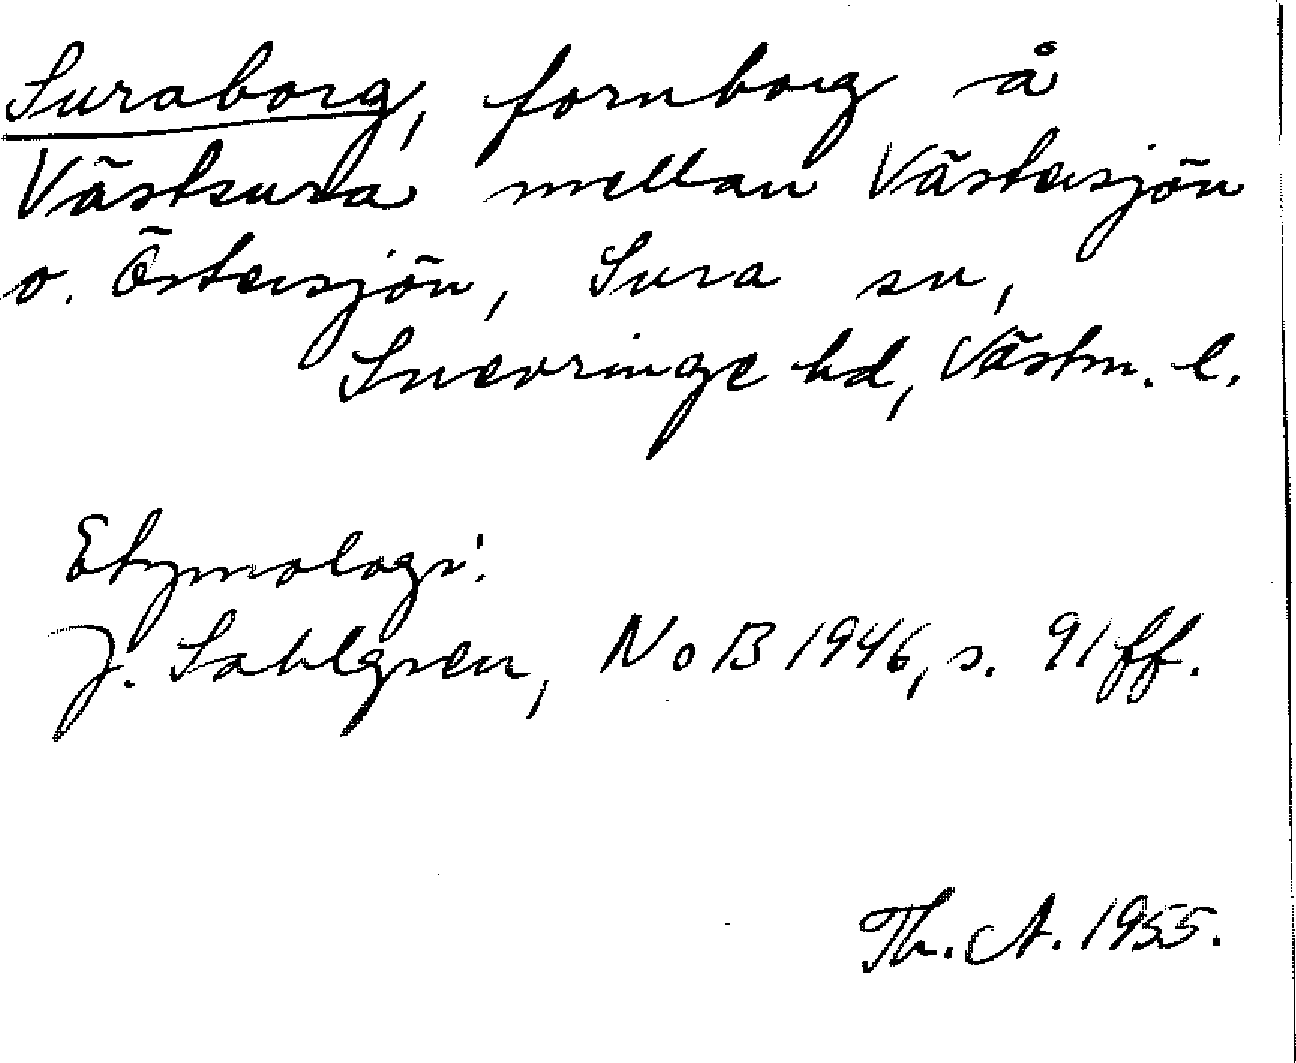 Suraborg, fornborg å
Västsura mellan Västersjön
o. Östersjön, Sura sn,
Snevringe hd, Västm. l.
Etymologi:
J. Sahlgren, NoB 1946, s. 91 ff.
Th. A. 1955.